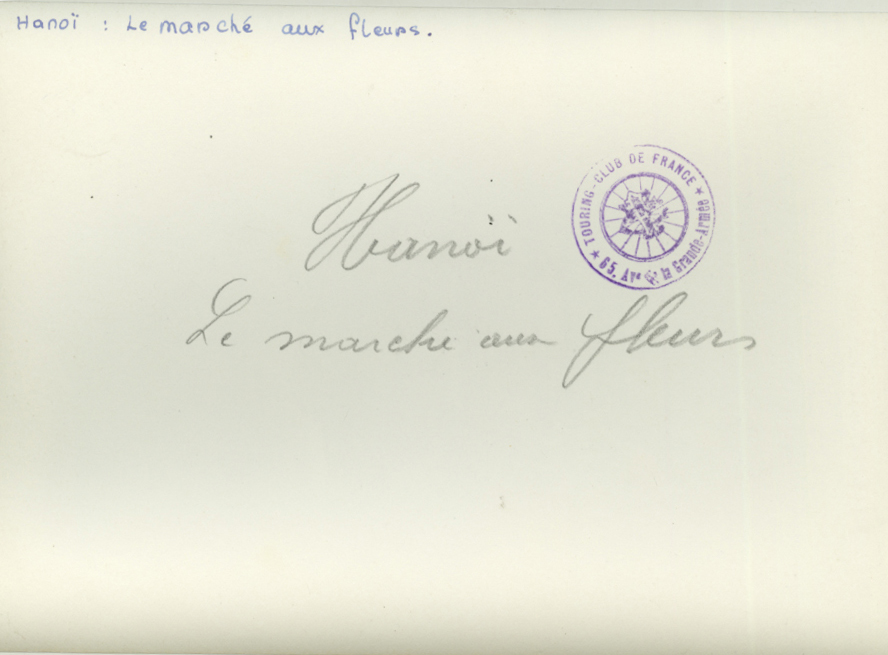 Hanoï : Le marché aux fleurs.
★ TOURING-CLUB DE FRANCE ★
65, Ave de la Grande-Armée
Hanoï
Le marche aux fleurs